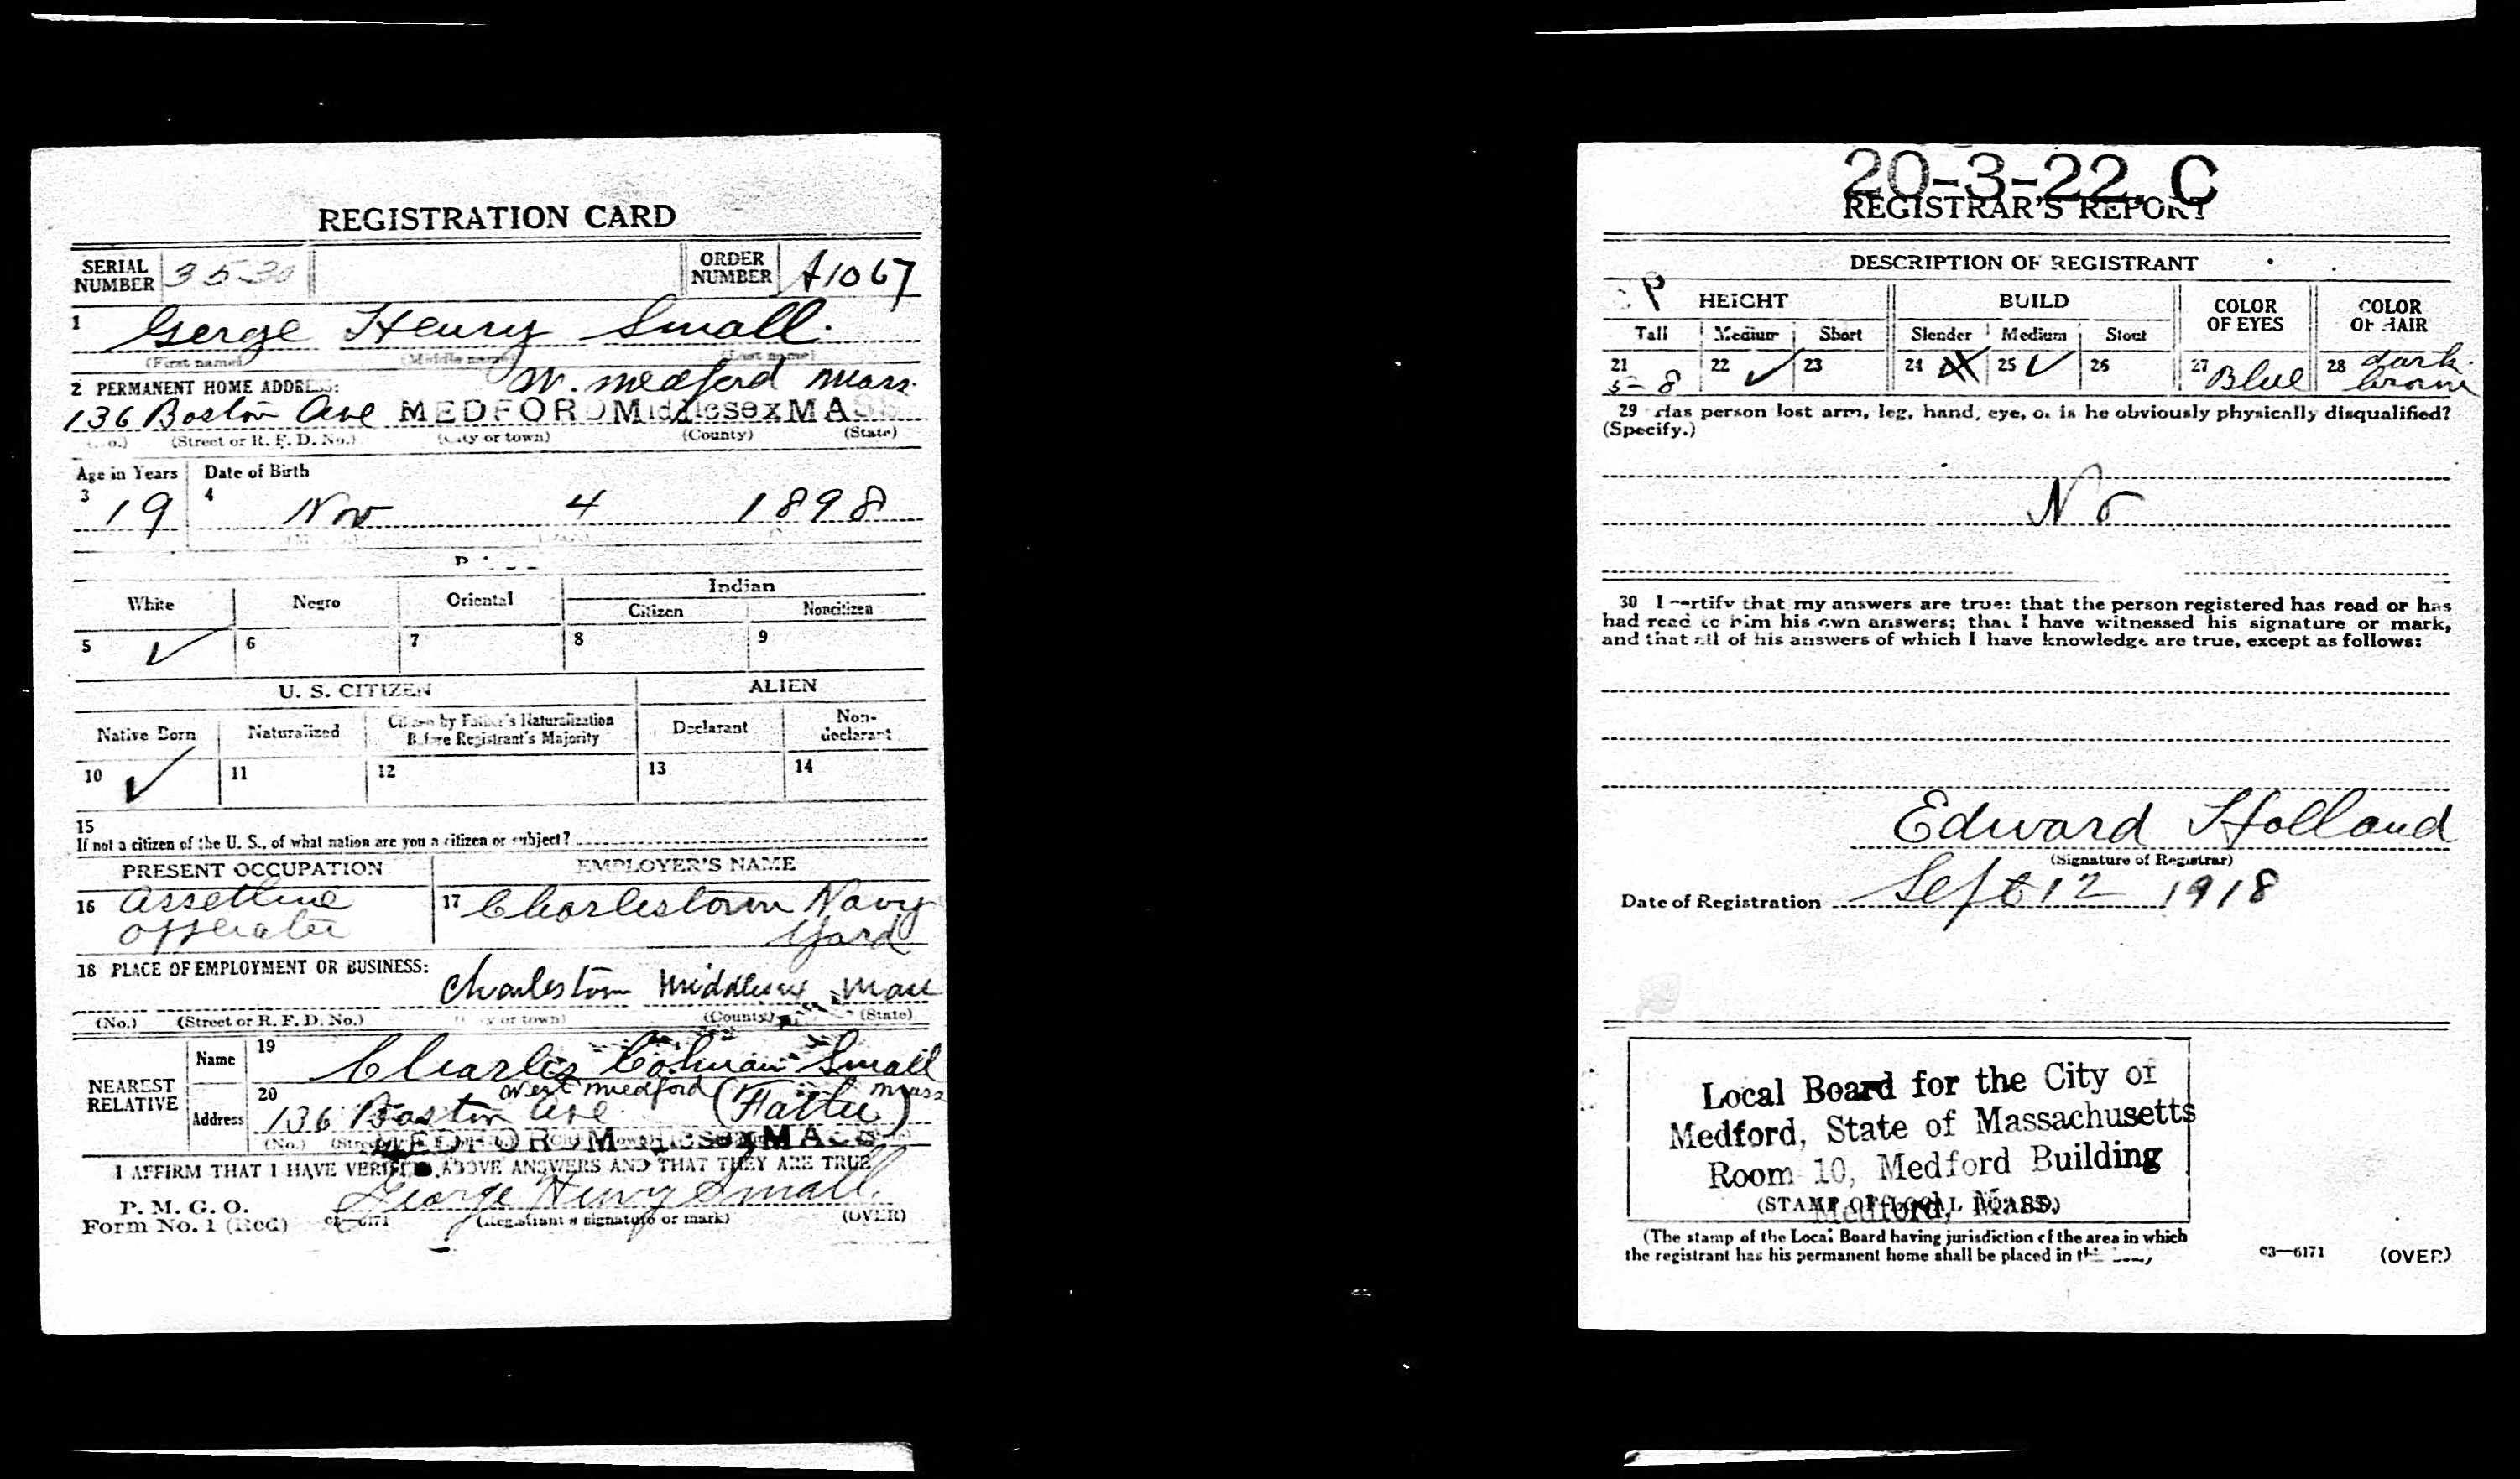 REGISTRATION CARD
SERIAL NUMBER 3530
ORDER NUMBER A1067
1 Gerge Henry Small.
(First name) (Middle name) (Last name)
2 PERMANENT HOME ADDRESS: W. Medford Mass.
136 Boston Ave MEDFORD Middlesex MASS
(No.) (Street or R. F. D. No.) (City or town) (County) (State)
Age in Years Date of Birth
3 19 4 Nov 4 1898
White Negro Oriental Indian
Citizen Noncitizen
5 ✓ 6 7 8 9
U. S. CITIZEN ALIEN
Native Born Naturalized Citizen by Father's Naturalization Before Registrant's Majority Declarant Non-declarant
10 ✓ 11 12 13 14
15
If not a citizen of the U. S., of what nation are you a citizen or subject?
PRESENT OCCUPATION EMPLOYER'S NAME
16 Assetline 17 Charlestown Navy
opperater Yard
18 PLACE OF EMPLOYMENT OR BUSINESS:
Charlestown Middlesex Mass
(No.) (Street or R. F. D. No.) (City or town) (County) (State)
NEAREST RELATIVE
Name 19 Charles Small
20 West Medford Mass
Address 136 Boston Ave. (Father)
MEDFORD Middlesex MASS
I AFFIRM THAT I HAVE VERIFIED ABOVE ANSWERS AND THAT THEY ARE TRUE
P. M. G. O. George Henry Small.
Form No. 1 (Red) c3—6171 (Registrant's signature or mark) (OVER)
20-3-22. C
REGISTRAR'S REPORT
DESCRIPTION OF REGISTRANT
HEIGHT BUILD COLOR OF EYES COLOR OF HAIR
Tall Medium Short Slender Medium Stout
21 5-8 22 ✓ 23 24 25 ✓ 26 27 Blue 28 dark brown
29 Has person lost arm, leg, hand, eye, or is he obviously physically disqualified?
(Specify.)
No
30 I certify that my answers are true; that the person registered has read or has
had read to him his own answers; that I have witnessed his signature or mark,
and that all of his answers of which I have knowledge are true, except as follows:
Edward Holland
(Signature of Registrar)
Date of Registration Sept 12 1918
Local Board for the City of
Medford, State of Massachusetts
Room 10, Medford Building
Medford, Mass.
(STAMP OF LOCAL BOARD)
(The stamp of the Local Board having jurisdiction of the area in which
the registrant has his permanent home shall be placed in
c3—6171 (OVER)